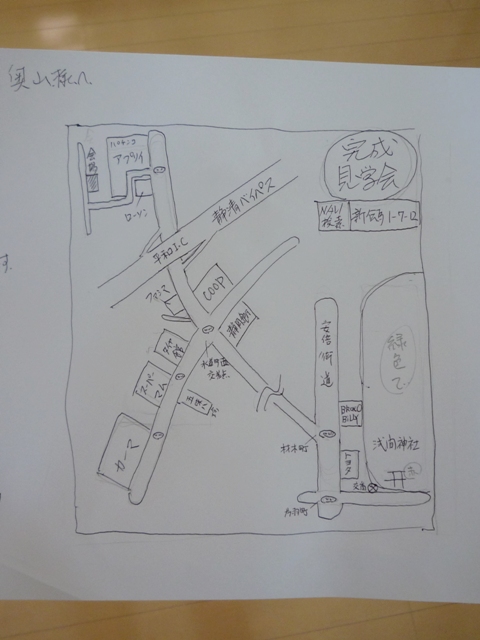 奥山様へ
完成
見学会
NAVI
検索
新伝馬1-7-12
会場
パチンコ
アプリイ
ローソン
静清バイパス
平和I.C
ファミマ
COOP
静岡
安倍街道
緑色で
スーパー
マム
カーマ
BRONCO
BILLY
材木町
トヨタ
浅間神社
赤
交番
す